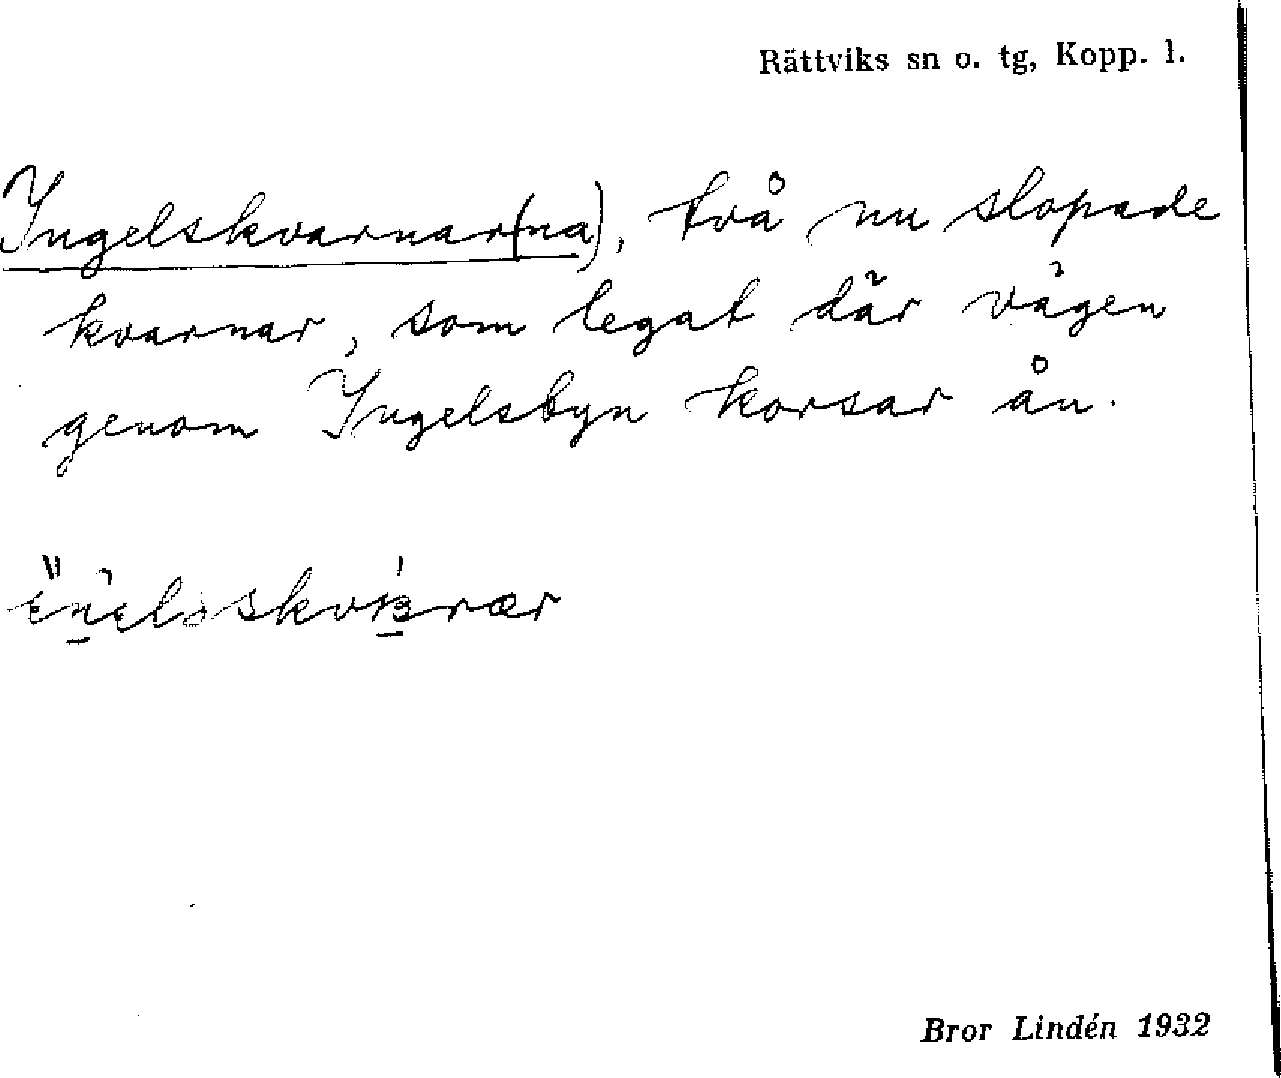 Rättviks sn o. tg, Kopp. l.
Ingelskvarnar(na), två nu slopade
kvarnar, som legat där vägen
genom Ingelsbyn korsar ån.
Bror Lindén 1932